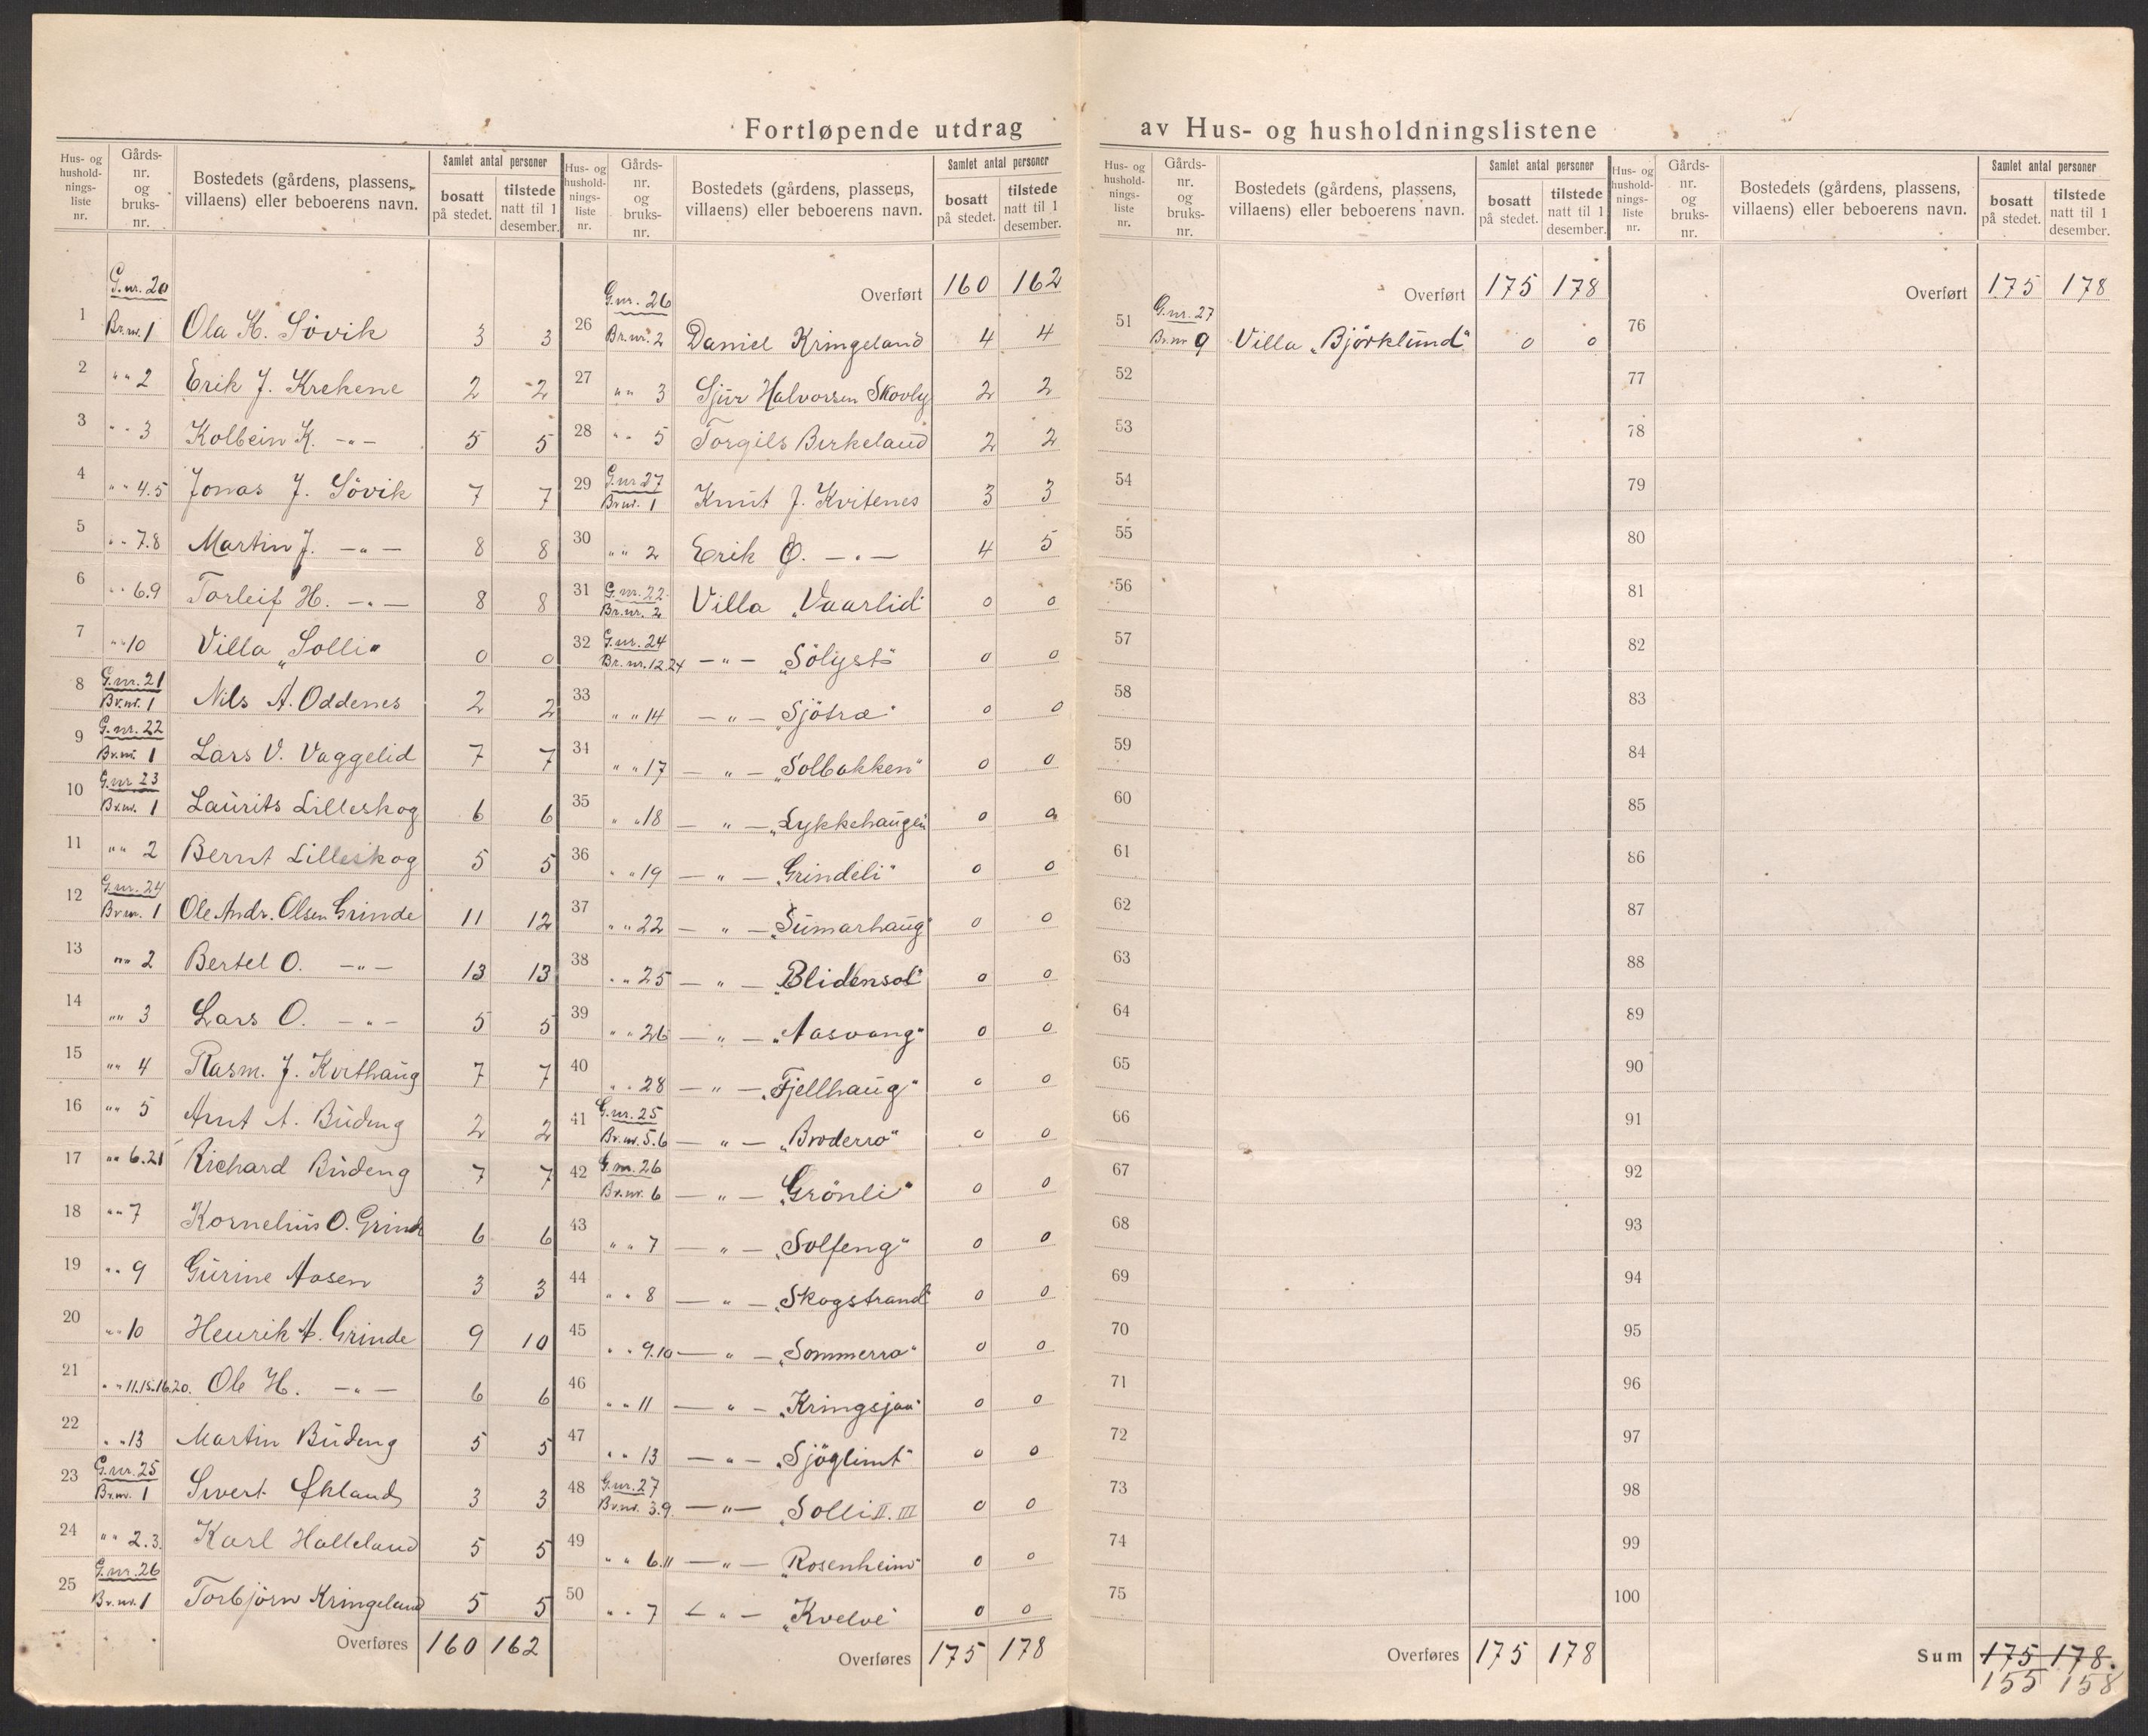 Fortløpende utdrag av Hus- og husholdningslistene
Hus- og hushold-nings-liste nr. | Gårds-nr. og bruks-nr. | Bostedets (gårdens, plassens, villaens) eller beboerens navn. | Samlet antal personer | bosatt på stedet. | tilstede natt til 1 desember.
G.nr. 20
1 Br.nr. 1 Ola K. Sövik 3 3
2 " " 2 Erik J. Krekene 2 2
3 " " 3 Kolbein K. - " - 5 5
4 " " 4.5 Jonas J. Sövik 7 7
5 " " 7.8 Martin J. - " - 8 8
6 " " 6.9 Torleif H. - " - 8 8
7 " " 10 Villa „Solli" 0 0
8 G.nr. 21 Br.nr. 1 Nils A. Oddenes 2 2
9 G.nr. 22 Br.nr. 1 Lars V. Vaggelid 7 7
10 G.nr. 23 Br.nr. 1 Laurits Lilleskog 6 6
11 " " 2 Bernt Lilleskog 5 5
12 G.nr. 24 Br.nr. 1 Ole Andr. Olsen Grinde 11 12
13 " " 2 Bertel O. - " - 13 13
14 " " 3 Lars O. - " - 5 5
15 " " 4 Rasm. J. Kvithaug 7 7
16 " " 5 Arnt A. Budeng 2 2
17 " " 6.21 Richard Budeng 7 7
18 " " 7 Kornelius O. Grinde 6 6
19 " " 9 Gurine Aasen 3 3
20 " " 10 Henrik A. Grinde 9 10
21 " " 11.15.16.20. Ole H. - " - 6 6
22 " " 13 Martin Budeng 5 5
23 G.nr. 25 Br.nr. 1 Sivert Økland 3 3
24 " " 2.3. Karl Halleland 5 5
25 G.nr. 26 Br.nr. 1 Torbjörn Kringeland 5 5
Overføres 160 162
Hus- og hushold-nings-liste nr. | Gårds-nr. og bruks-nr. | Bostedets (gårdens, plassens, villaens) eller beboerens navn. | Samlet antal personer | bosatt på stedet. | tilstede natt til 1 desember.
Overført 160 162
26 G.nr. 26 Br.nr. 2 Daniel Kringeland 4 4
27 " " 3 Sjur Halvorsen Skovly 2 2
28 " " 5 Torgils Birkeland 2 2
29 G.nr 27 Br.nr. 1 Knut J. Kvitenes 3 3
30 " " 2 Erik Ø. - " - 4 5
31 G.nr. 22 Br.nr. 2 Villa „Vaarlid" 0 0
32 G.nr. 24 Br.nr. 12.24 - " - „Sölyst" 0 0
33 " " 14 - " - „Sjötræ" 0 0
34 " " 17 - " - „Solbakken" 0 0
35 " " 18 - " - „Lykkehaugen" 0 0
36 " " 19 - " - „Grindeli" 0 0
37 " " 22 - " - „Sumarhaug" 0 0
38 " " 25 - " - „Blidensol" 0 0
39 " " 26 - " - „Aasvang" 0 0
40 " " 28 - " - „Fjellhaug" 0 0
41 G.nr. 25 Br.nr. 5.6 - " - „Broderro" 0 0
42 G.nr. 26 Br.nr. 6 - " - „Grönli" 0 0
43 " " 7 - " - „Solfeng" 0 0
44 " " 8 - " - „Skogstrand" 0 0
45 " " 9.10 - " - „Sommerro" 0 0
46 " " 11 - " - „Kringsjaa" 0 0
47 " " 13 - " - „Sjöglimt" 0 0
48 G.nr. 27 Br.nr. 3.9. - " - „Solli II. III 0 0
49 " " 6.11 - " - „Rosenheim" 0 0
50 " " 7 - " - „Kvelve" 0 0
Overføres 175 178
Hus- og hushold-nings-liste nr. | Gårds-nr. og bruks-nr. | Bostedets (gårdens, plassens, villaens) eller beboerens navn. | Samlet antal personer | bosatt på stedet. | tilstede natt til 1 desember.
Overført 175 178
51 G.nr. 27 Br.nr 9 Villa „Björklund" 0 0
52
53
54
55
56
57
58
59
60
61
62
63
64
65
66
67
68
69
70
71
72
73
74
75
Overføres 175 178
Hus- og hushold-nings-liste nr. | Gårds-nr. og bruks-nr. | Bostedets (gårdens, plassens, villaens) eller beboerens navn. | Samlet antal personer | bosatt på stedet. | tilstede natt til 1 desember.
Overført 175 178
76
77
78
79
80
81
82
83
84
85
86
87
88
89
90
91
92
93
94
95
96
97
98
99
100
Sum 175 178.
155 158